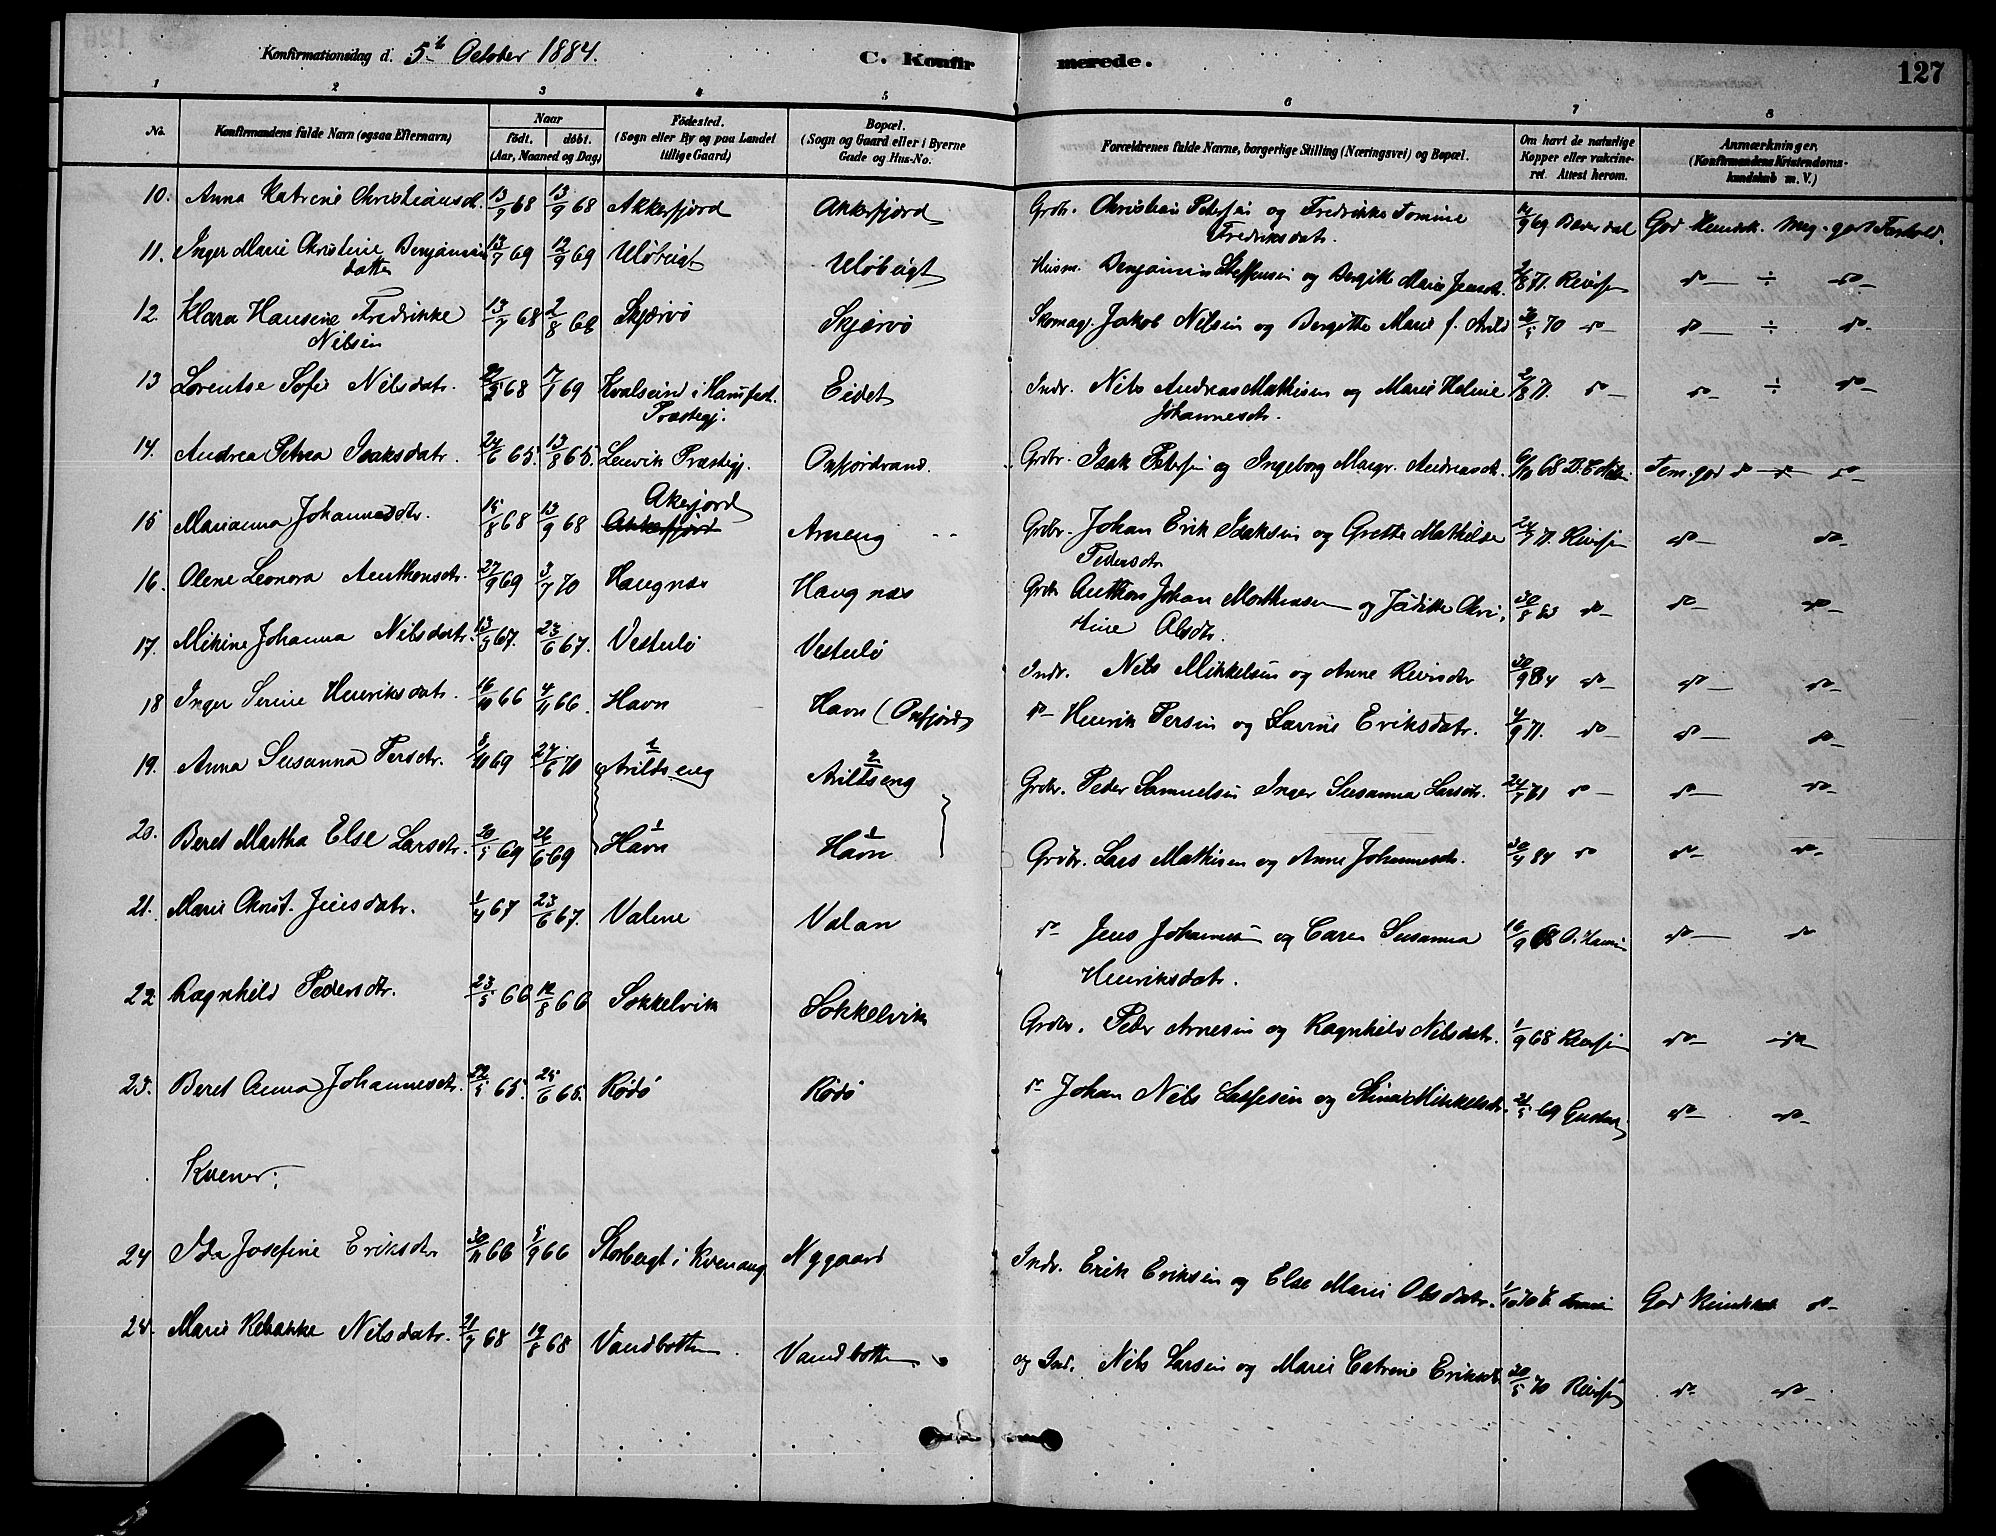 Konfirmationsdag d. 5te October 1884. C. Konfirmerede. 127
1 2 3 4 5 6 7 8
No. Konfirmandens fulde Navn (ogsaa Efternavn) Naar født. døbt. (Aar, Maaned og Dag) Fødested. (Sogn eller By og paa Landet tillige Gaard) Bopæl. (Sogn og Gaard eller i Byerne Gade og Hus-No. Forældrenes fulde Navne, borgerlige Stilling (Næringsvei) og Bopæl. Om havt de naturlige Kopper eller vakcineret. Attest herom. Anmærkninger. (Konfirmandens Kristendomskundskab m. V.)
10. Anna Katrine Christiansd. 13/7 68 13/9 68 Akkerfjord Akkerfjord Grdbr. Christian Petersen og Fredrikke Tomine Fredriksdatr. 69 God Kundsk. Meg. godt Forhold.
11. Inger Marie Christine Benjamins datter 13/7 69 12/9 69 Uløbugt Uløbugt Husm. Benjamin Steffensen og Bergitte Marie Jensdtr. 2/8 71. do — ÷ do
12. Klara Hansine Fredrikke Nilsen 13/7 68 2/8 68 Skjærvø Skjærvø Skomag. Jakob Nilsen og Bergitte Marie f. Arild 70 do — do — ÷ do
13 Lorentse Sofie Nilsdatr. 68 7/1 69 Kvalsund i Hamfest. Præstegj. Eidet Indr. Nils Andreas Mathisen og Marie Heline Johannesdtr. 2/8 71. do — do — ÷ do
14. Andrea Petrea Isaksdatr. 24/6 65. 13/8 65. Lenvik Præstegj. Oxfjordvand. Grdbr. Isak Petersen og Ingeborg Margr. Andreasdtr. 68 Tem. god do — do
15 Marianna Johannesdtr. 15/8 68 13/9 68 Akerfjord Akkerfjord Arneng Grdbr. Johan Erik Isaksen og Grette Mathilde Pedersdtr. 24/7 71. do — do
16. Olene Leonora Anthonsdtr. 27/9 69 3/7 70 Haugnæs Haugnæs Grdbr Anthon Johan Mathiassen og Jådikke Christine Olsdtr. 30/8 do — do — do
17. Mikine Johanna Nilsdatr. 13/3 67. 23/6 67. Vesterlø Vesterlø Indr. Nils Mikkelsen og Anne 30/9 84 do — do — do
18 Inger Serine Henriksdatr. 16/10 66 4/11 66. Havn Havn (Oxfjord) do — Henrik Persen og Lavine Eriksdatr. 4/9 71. do — do — do
19. Anna Susanna Persdtr. 69 27/6 70 2 Arildseng 2 Arildseng Grdbr. Peder Samuelsen Inger Susanna Larsdtr. 24/7 71 do — do — do
20. Beret Martha Else Larsdtr. 20/5 69 26/6 69 1 Havn 1 Havn Grdbr. Lars Mathisen og Anne Johannesdtr. 30/4 84 do do — do
21. Marie Christ. Jensdatr. 1/4 67 23/6 67. Valene Valan do Jens Johannesen og Caren Susanna Henriksdatr. 16/9 68 do — do
22 Ragnhild Pedersdtr. 23/5 66 12/8 66 Sokkelvik Sokkelvik Grdbr. Peder Arnesen og Ragnhild Nilsdatr. 1/9 68 do — do
23. Beret Anna Johannesdtr. 22/5 65. 25/6 65. Rødø Rødø do Johan Nils Lassesen og Stina Mikkelsdtr. 21/5 69 do — do
Kvener:
24 Ida Josefine Eriksdtr 66 5/9 66 Storbugt i Kvenang Nygaard Indr. Erik Eriksen og Else Marie Olsdatr. 70 God Kundskab do
25. Marie Rebække Nilsdatr. 21/7 68 68 Vandbotten Vandbotten og Ind. Nils Larsen og Marie Catrine Eriksdtr 20/5 70 do — do